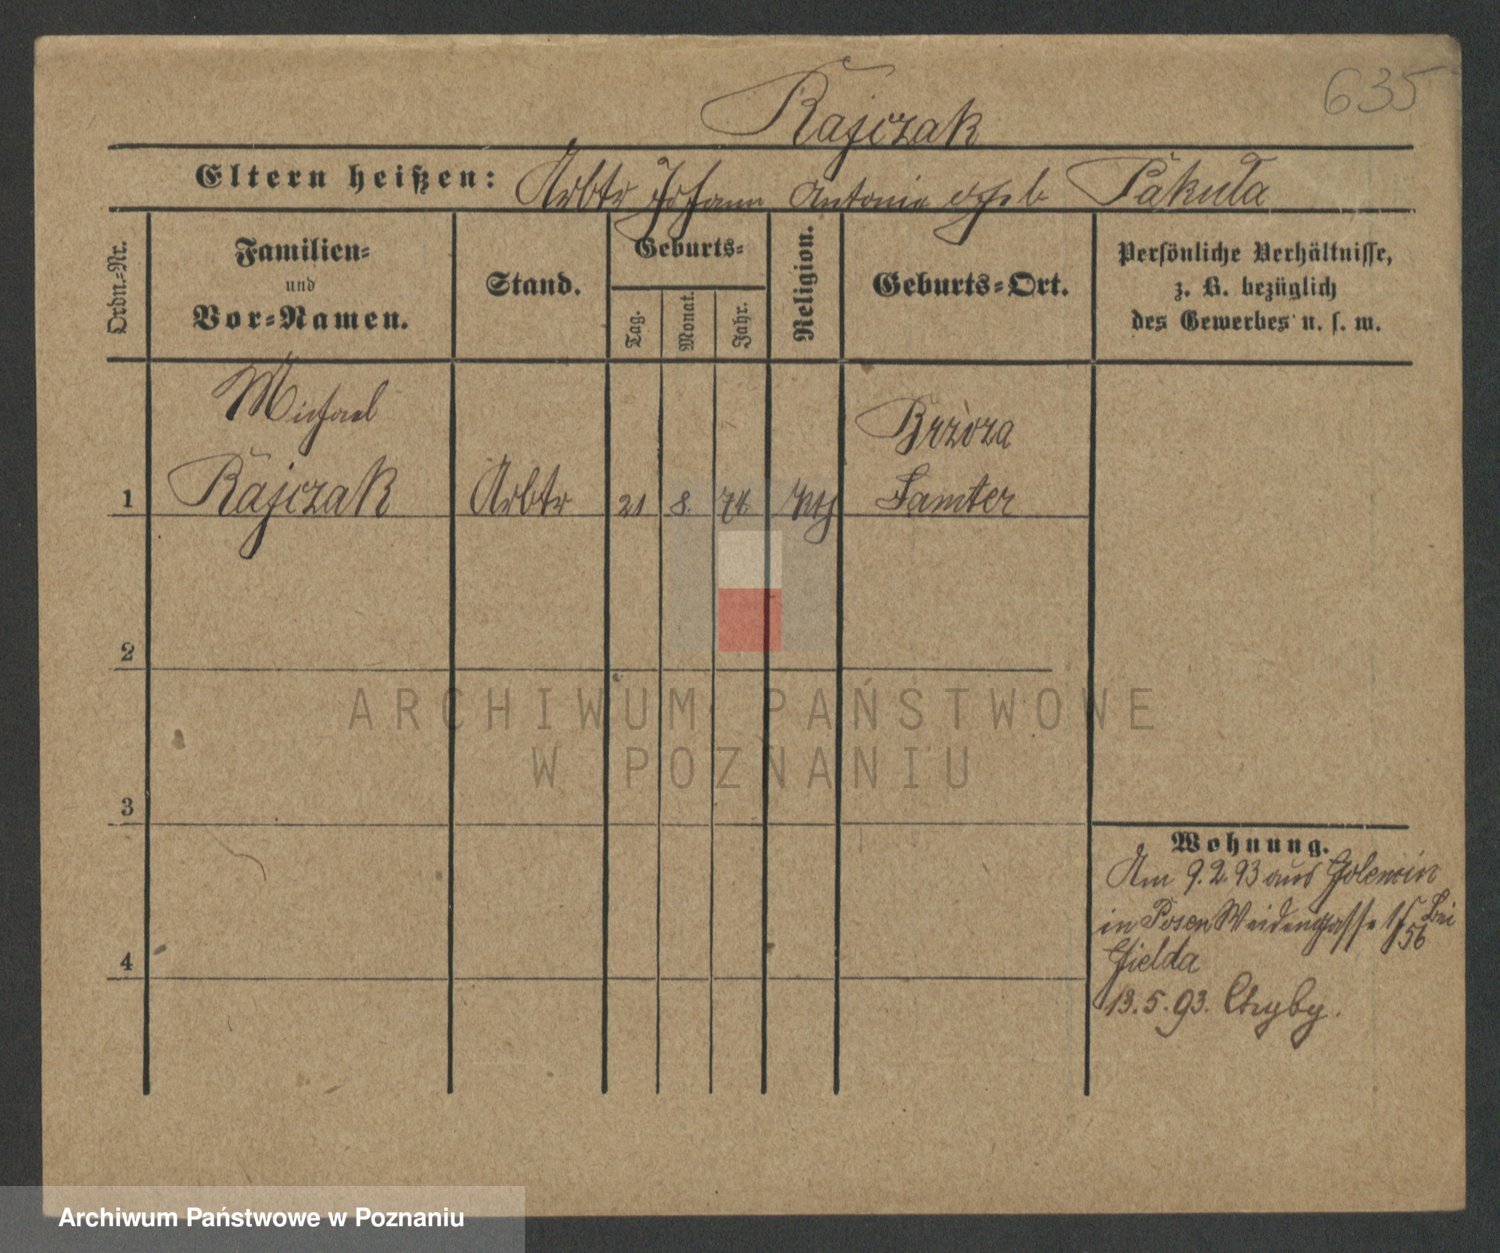 635
Rajczak
Eltern heißen: Arbtr Johann Antonie geb Pakuła
Ordn.-Nr.
Familien-
und
Vor-Namen.
Stand.
Geburts-
Tag.
Monat.
Jahr.
Religion.
Geburts-Ort.
Persönliche Verhältnisse,
z. B. bezüglich
des Gewerbes u. s. w.
Michael
Rajczak
1
Arbtr
21
8.
74
kth
Brzoza
Samter
2
3
4
Wohnung.
Am 9.2.93 aus Golencin
in Posen Weidengasse bei
Gielda
13.5.93.
ARCHIWUM PAŃSTWOWE
W POZNANIU
Archiwum Państwowe w Poznaniu